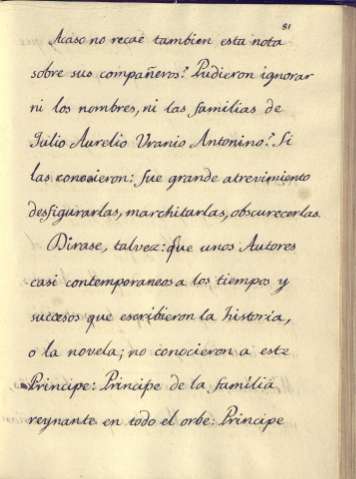 81
Acaso no recae tambien esta nota
sobre sus compañeros? Pudieron ignorar
ni los nombres, ni las familias de
Julio Aurelio Uranio Antonino? Si
las conocieron: fue grande atrevimiento
desfigurarlas, marchitarlas, obscurecerlas.
Dirase, talvez: que unos Autores
casi contemporaneos a los tiempos y
sucesos que escribieron la historia,
o la novela; no conocieron a este
Principe: Principe de la familia
reynante en todo el orbe: Principe